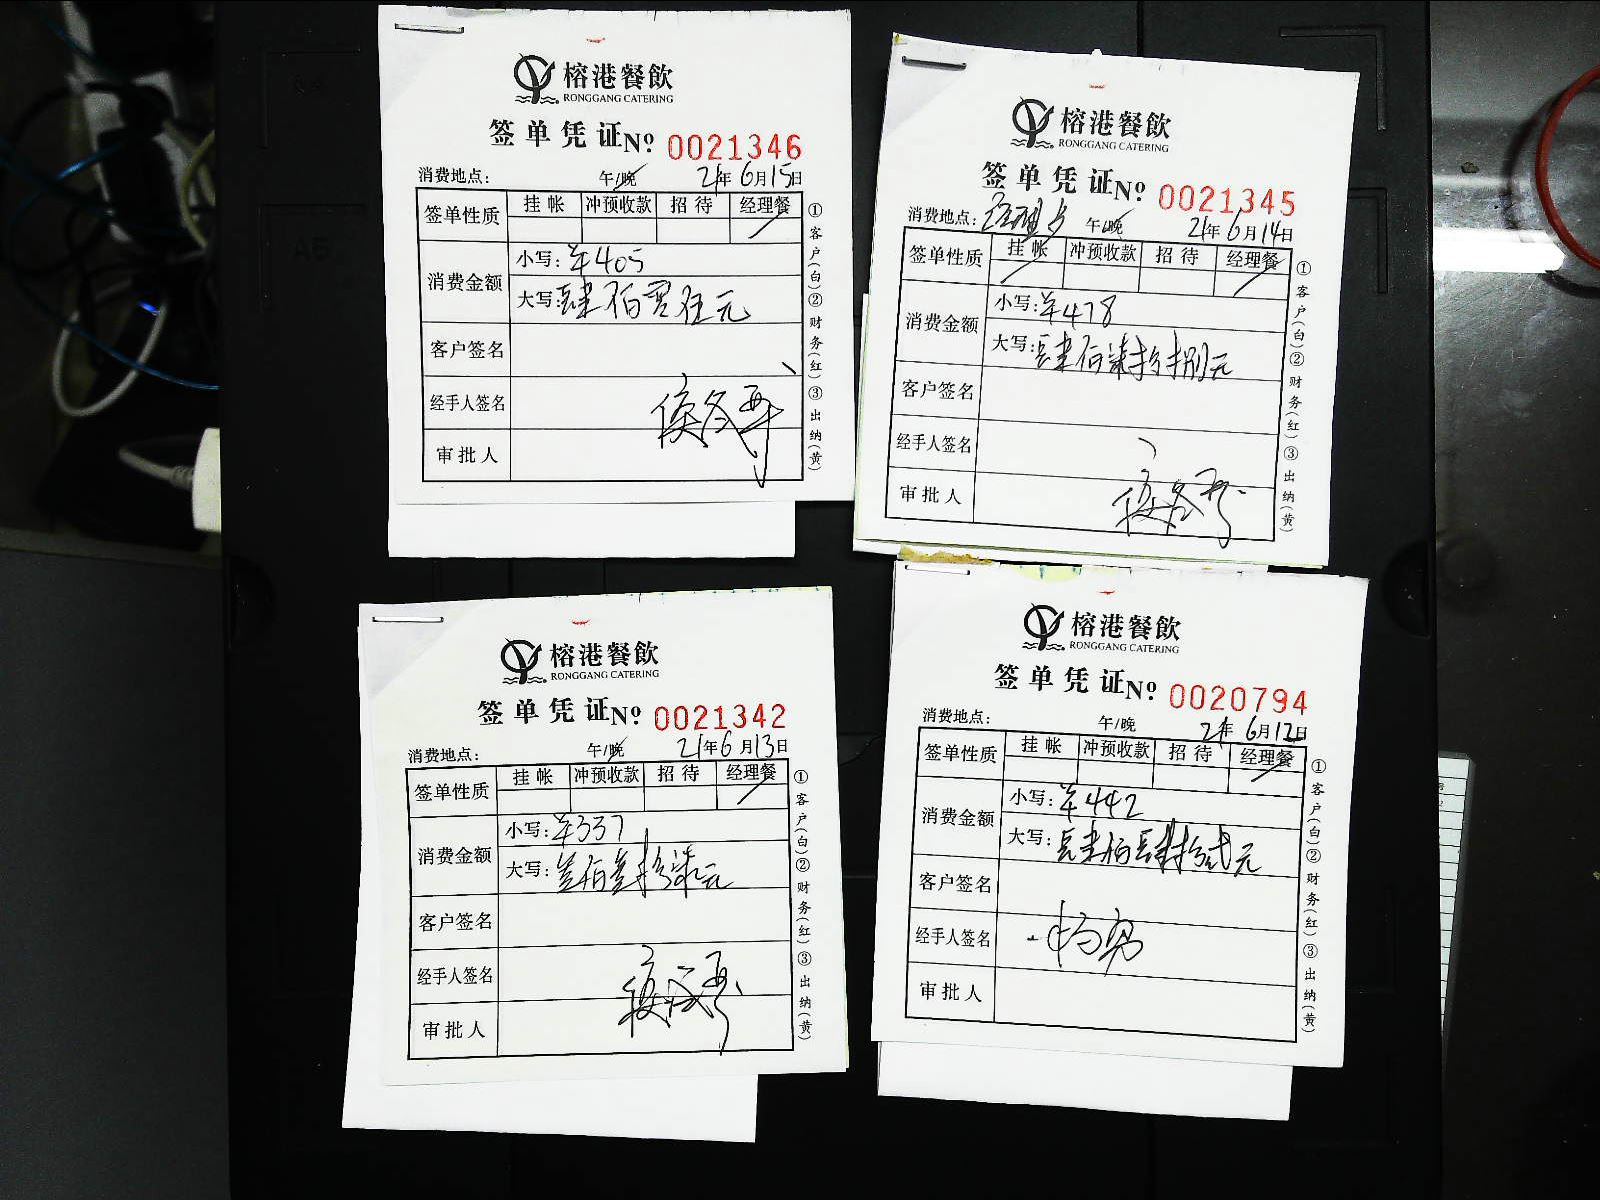 榕港餐飲
RONGGANG CATERING
签单凭证№ 0021346
消费地点： 午/晚 21年6月15日
签单性质 挂帐 冲预收款 招待 经理餐
消费金额 小写：¥405
大写：肆佰零伍元
客户签名
经手人签名
审批人
①客户(白)②财务(红)③出纳(黄)
榕港餐飲
RONGGANG CATERING
签单凭证№ 0021345
消费地点： 午/晚 21年6月14日
签单性质 挂帐 冲预收款 招待 经理餐
消费金额 小写：¥478
大写：肆佰柒拾捌元
客户签名
经手人签名
审批人
①客户(白)②财务(红)③出纳(黄)
榕港餐飲
RONGGANG CATERING
签单凭证№ 0021342
消费地点： 午/晚 21年6月13日
签单性质 挂帐 冲预收款 招待 经理餐
消费金额 小写：¥337
大写：叁佰叁拾柒元
客户签名
经手人签名
审批人
①客户(白)②财务(红)③出纳(黄)
榕港餐飲
RONGGANG CATERING
签单凭证№ 0020794
消费地点： 午/晚 21年6月12日
签单性质 挂帐 冲预收款 招待 经理餐
消费金额 小写：¥442
大写：肆佰肆拾贰元
客户签名
经手人签名
审批人
①客户(白)②财务(红)③出纳(黄)
A5